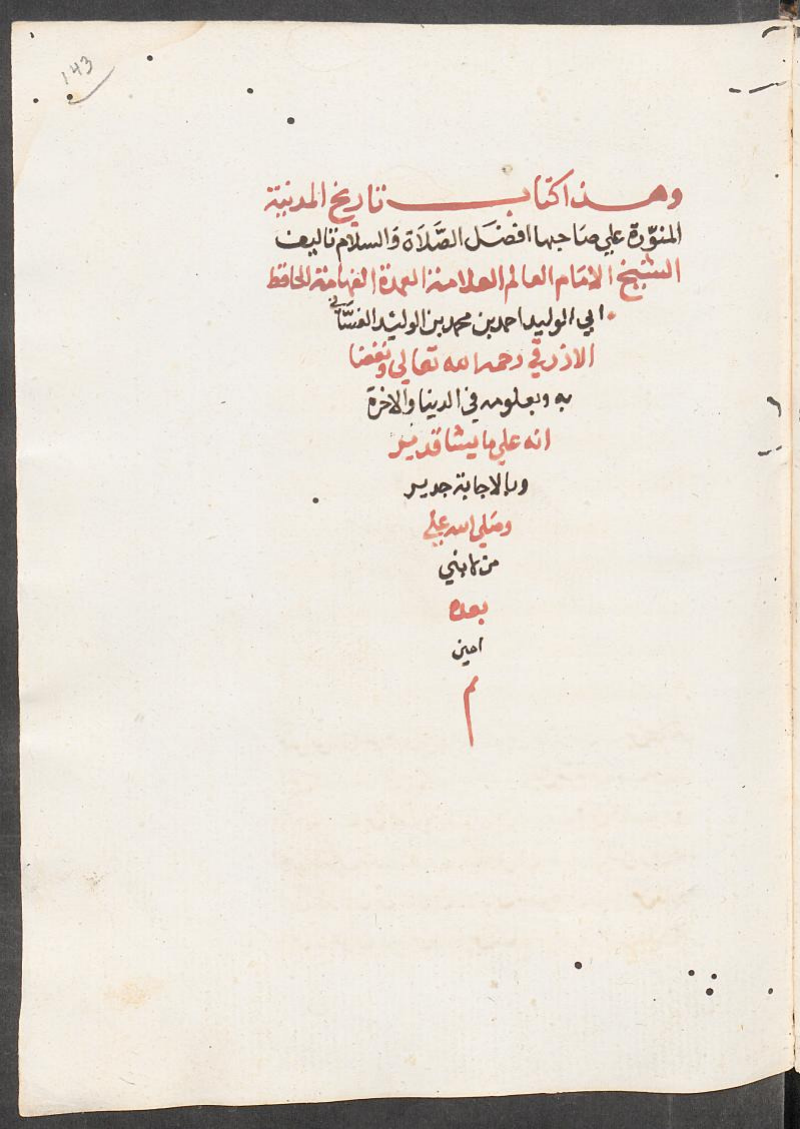 143
وهذا كتاب تاريخ المدينة
المنوّرة علي صاحبها افضل الصَّلَاة وَالسلام تاليف
الشيخ الامام العالم العلامة العمدة الفهامة الحافظ
ابي الوليد احمد بن محمد بن الوليد الغسَّاني
الازرقي رحمه الله تعالي ونفعنا
به وبعلومه في الدنيا والاخرة
انه علي ما يشا قدير
وبالاجابة جدير
وصلي الله علي
من لا نبي
بعده
امين
م